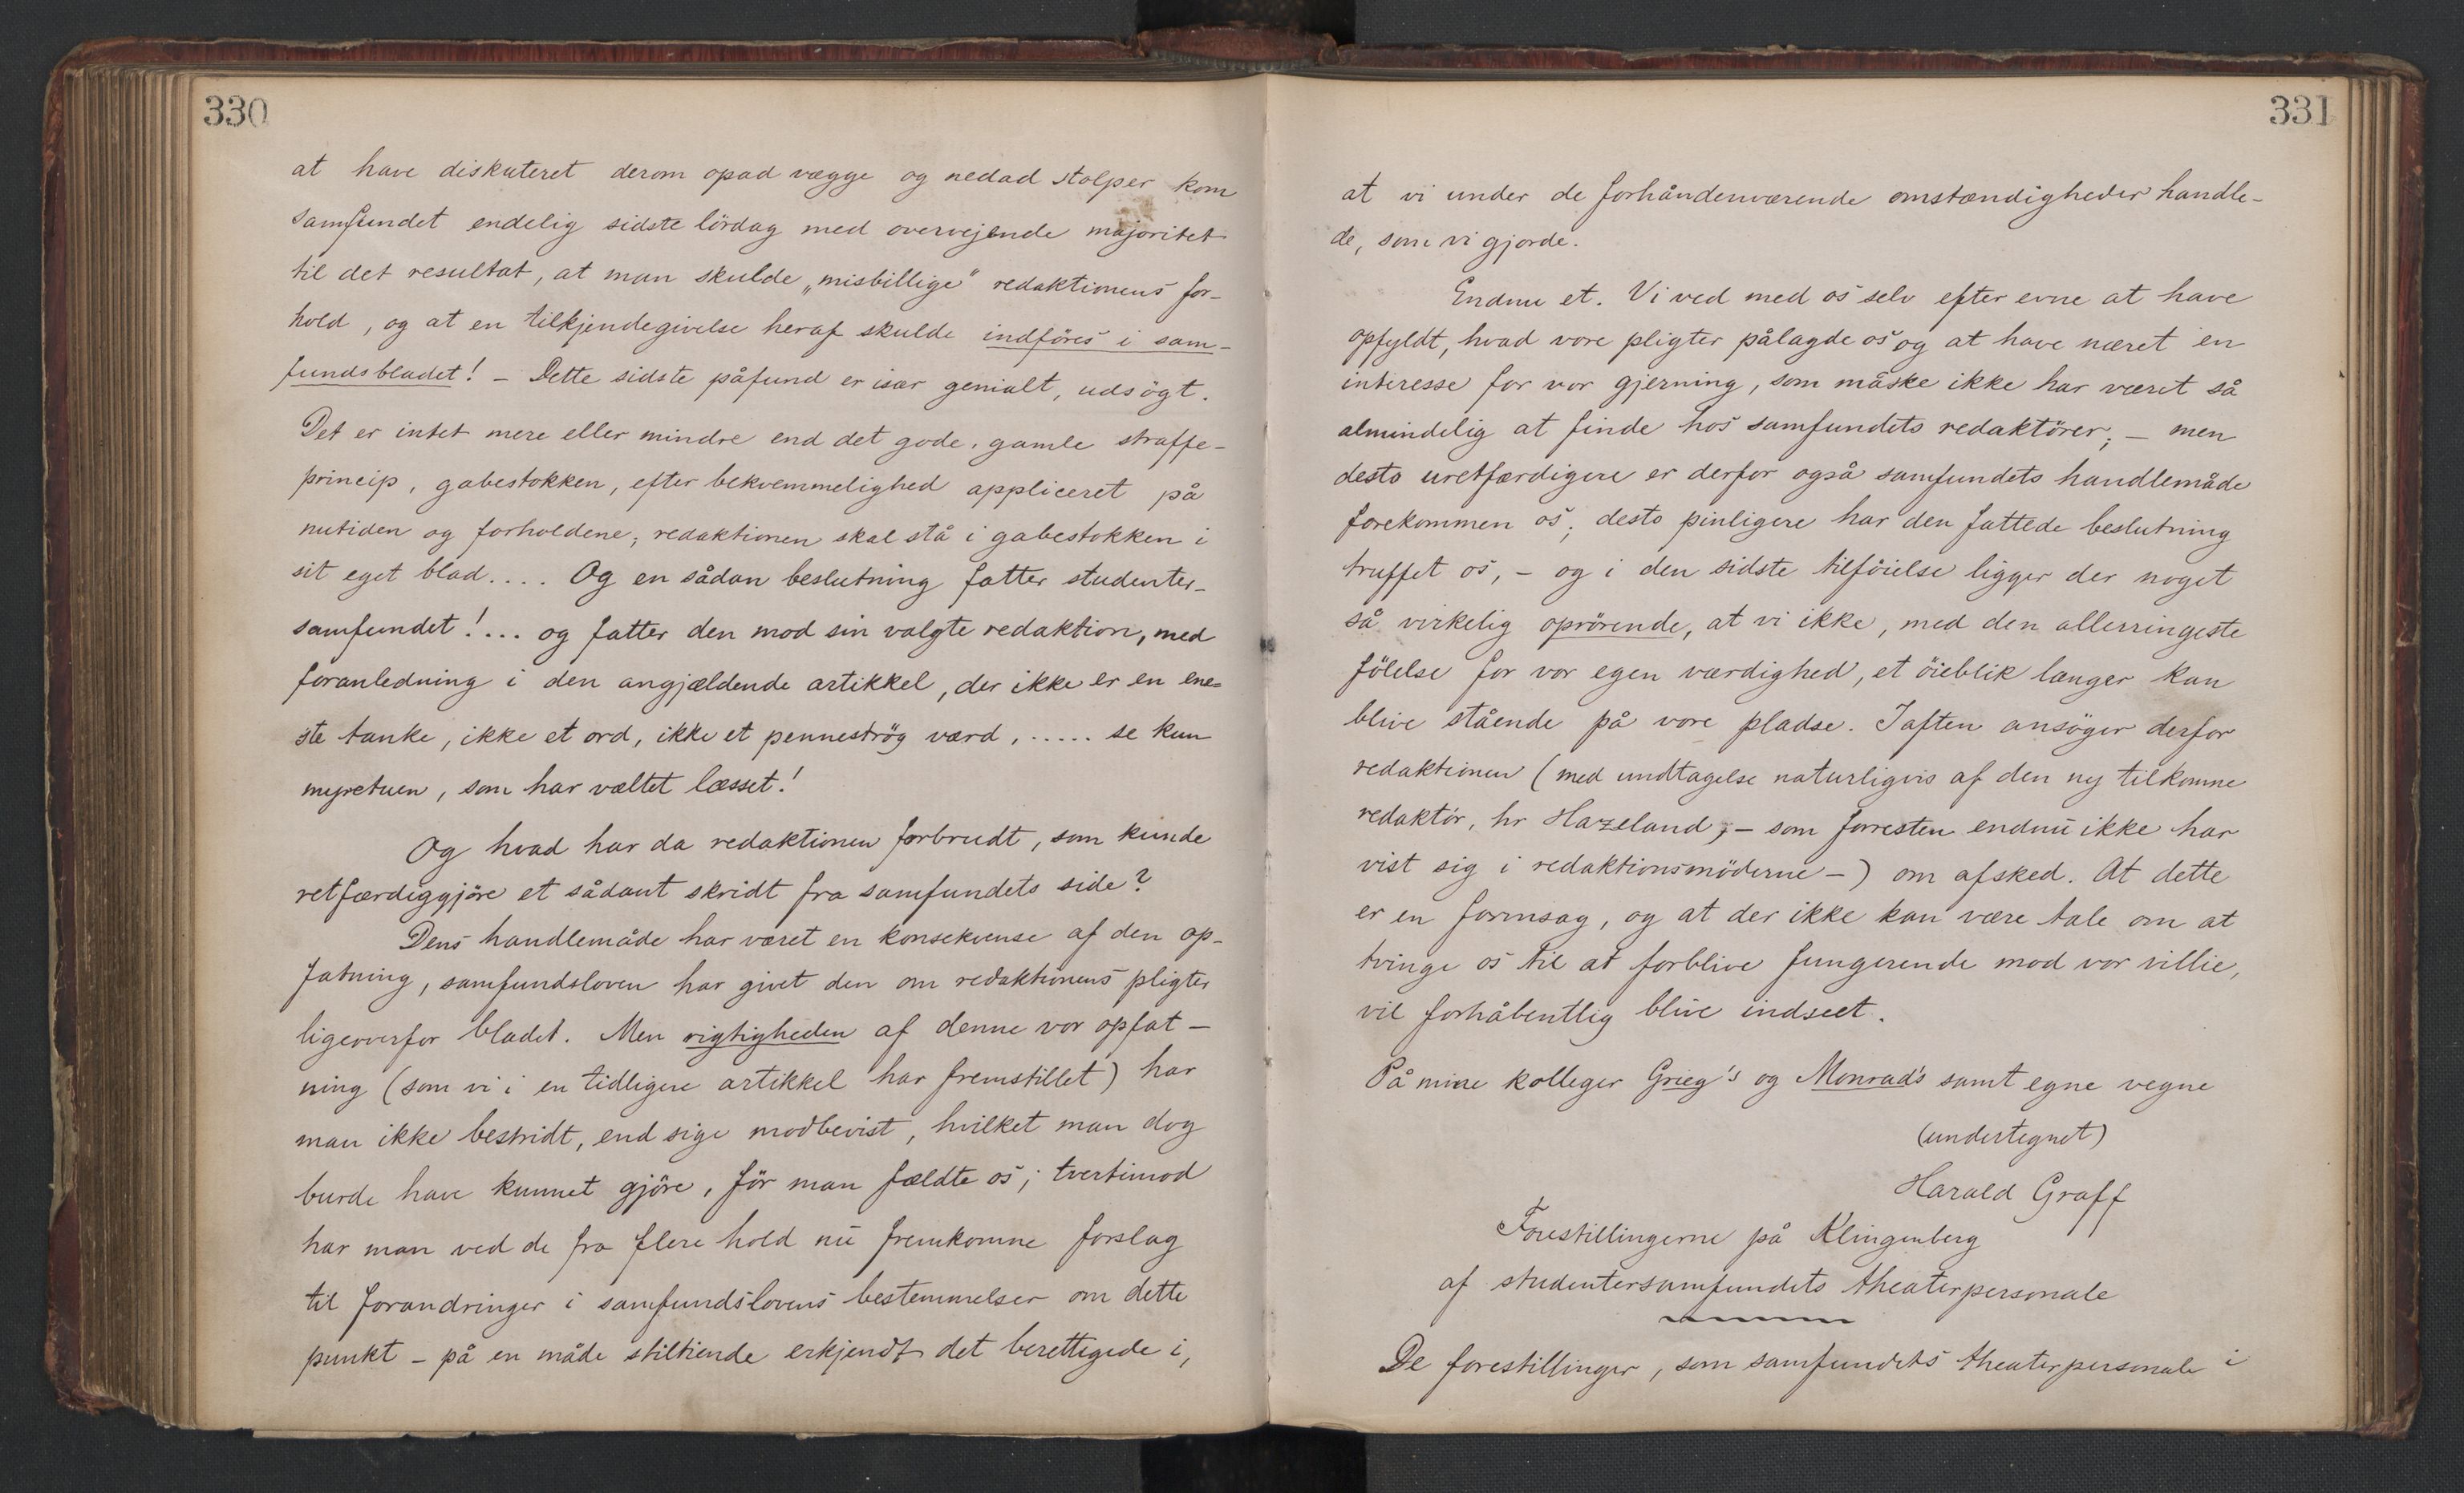 330
at have diskuteret derom opad vægge og nedad stolper kom
samfundet endelig sidste lördag med overvejende majoritet
til det resultat, at man skulde „misbillige" redaktionens for-
hold, og at en tilkjendegivelse heraf skulde indföres i sam-
fundsbladet! - Dette sidste påfund er især genialt, udsögt.
Det er intet mere eller mindre end det gode, gamle straffe-
princip, gabestokken, efter bekvemmelighed appliceret på
nutiden og forholdene; redaktionen skal stå i gabestokken i
sit eget blad.... Og en sådan beslutning fatter studenter-
samfundet!... og fatter den mod sin valgte redaktion, med
foranledning i den angjældende artikkel, der ikke er en ene-
ste tanke, ikke et ord, ikke et penneströg værd, ..... se kun
myretuen, som har væltet læsset!
Og hvad har da redaktionen forbrudt, som kunde
retfærdiggjöre et sådant skridt fra samfundets side?
Dens handlemåde har været en konsekvense af den op-
fatning, samfundsloven har givet den om redaktionens pligter
ligeoverfor bladet. Men rigtigheden af denne vor opfat-
ning (som vi i en tidligere artikkel har fremstillet) har
man ikke bestridt, end sige modbevist, hvilket man dog
burde have kunnet gjöre, för man fældte os; tvertimod
har man ved de fra flere hold nu fremkomne forslag
til forandringer i samfundslovens bestemmelser om dette
punkt - på en måde stiltiende erkjendt det berettigede i,
331
at vi under de forhåndenværende omstændigheder handle-
de, som vi gjorde.
Endnu et. Vi ved med os selv efter evne at have
opfyldt, hvad vore pligter pålagde os og at have næret en
interesse for vor gjerning, som måske ikke har været så
almindelig at finde hos samfundets redaktörer; - men
desto uretfærdigere er derfor også samfundets handlemåde
forekommen os; desto pinligere har den fattede beslutning
truffet os, - og i den sidste tilföielse ligger der noget
så virkelig oprörende, at vi ikke, med den allerringeste
fölelse for vor egen værdighed, et öieblik længer kan
blive stående på vore pladse. Iaften ansöger derfor
redaktionen (med undtagelse naturligvis af den ny tilkomne
redaktör, hr Hazeland, - som forresten endnu ikke har
vist sig i redaktionsmöderne -) om afsked. At dette
er en formsag, og at der ikke kan være tale om at
tvinge os til at forblive fungerende mod vor villie,
vil forhåbentlig blive indseet.
På mine kolleger Grieg's og Monrad's samt egne vegne
(undertegnet)
Harald Graff
Forestillingerne på Klingenberg
af studentersamfundets theaterpersonale
De forestillinger, som samfundets theaterpersonale i